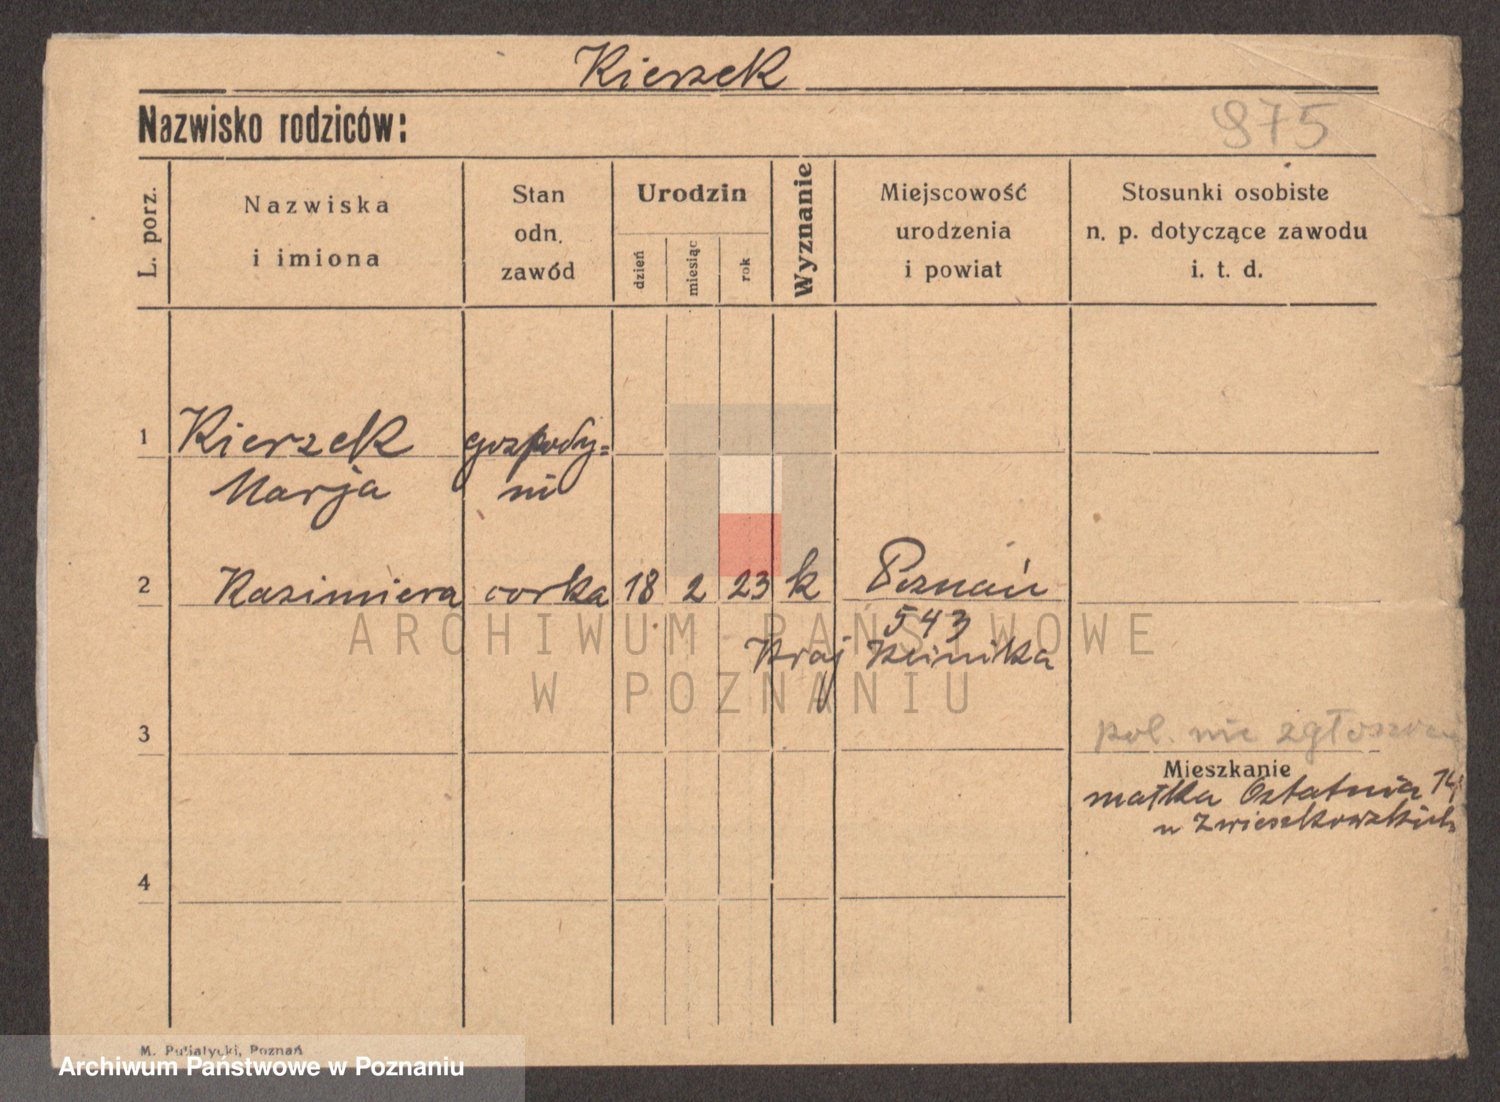 Kierzek
Nazwisko rodziców:
975
L. porz.
Nazwiska
i imiona
Stan
odn.
zawód
Urodzin
dzień
miesiąc
rok
Wyznanie
Miejscowość
urodzenia
i powiat
Stosunki osobiste
n. p. dotyczące zawodu
i. t. d.
1 Kierzek gospody=
Marja ni
2 Kazimiera corka 18 2 23 k Poznań
543
Kraj Klinika
ARCHIWUM PAŃSTWOWE
W POZNANIU
3
pol. nie zgłoszony
Mieszkanie
matka Ostatnia 14
u
4
M. Putiatycki, Poznań
Archiwum Państwowe w Poznaniu